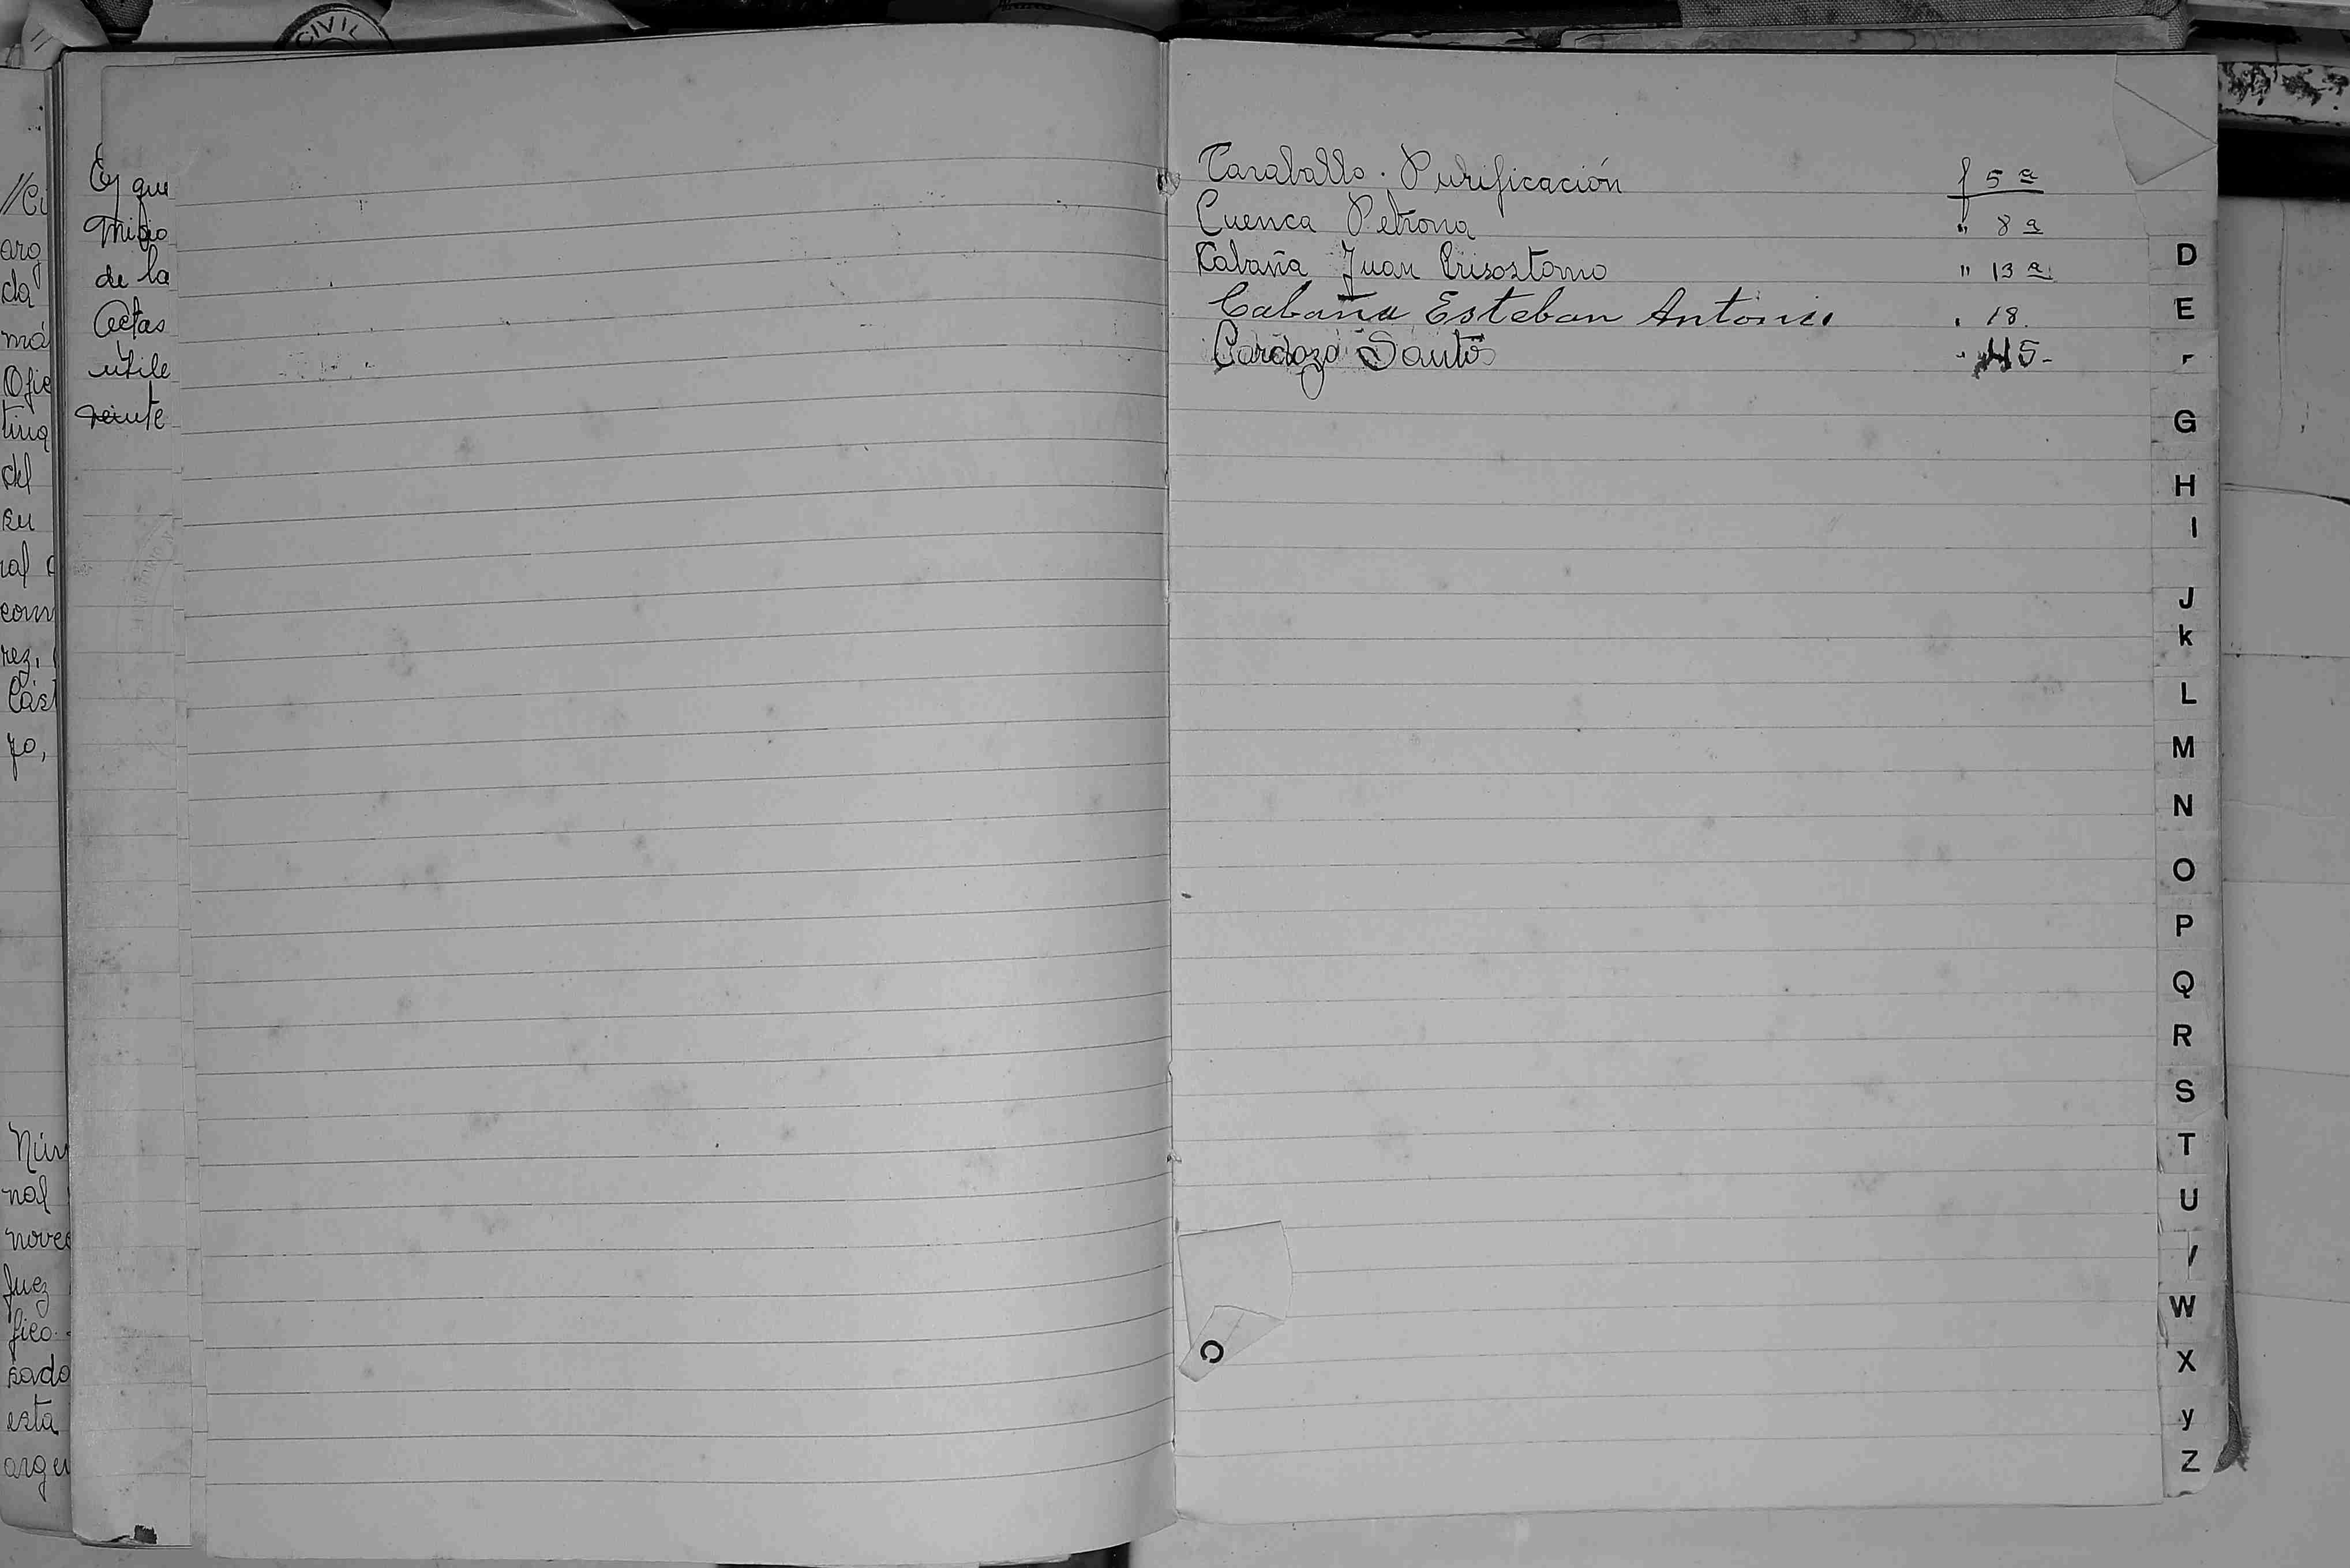 CIVIL
//Ci
arg
da
má
Ofic
ting
del
su
ral
com
rez,
Cást
yo,
Núm
nal
nove
Juez
fico
sado
esta
argu
Es que
de la
Actas
útile
veinte
Caraballo. Purificación f 5 a
Cuenca Petrona " 8 a
Cabaña Juan Crisostomo " 13 a
Cabaña Esteban Antonio . 18.
Cardozo Santos - 45-
D
E
G
H
I
J
k
L
M
N
O
P
Q
R
S
T
U
W
X
y
Z
C